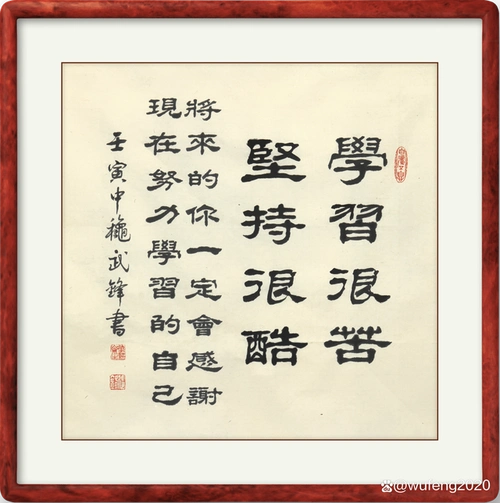 學習很苦
堅持很酷
將來的你一定會感謝
現在努力學習的自己
壬寅中穐武鋒書
@wufeng2020